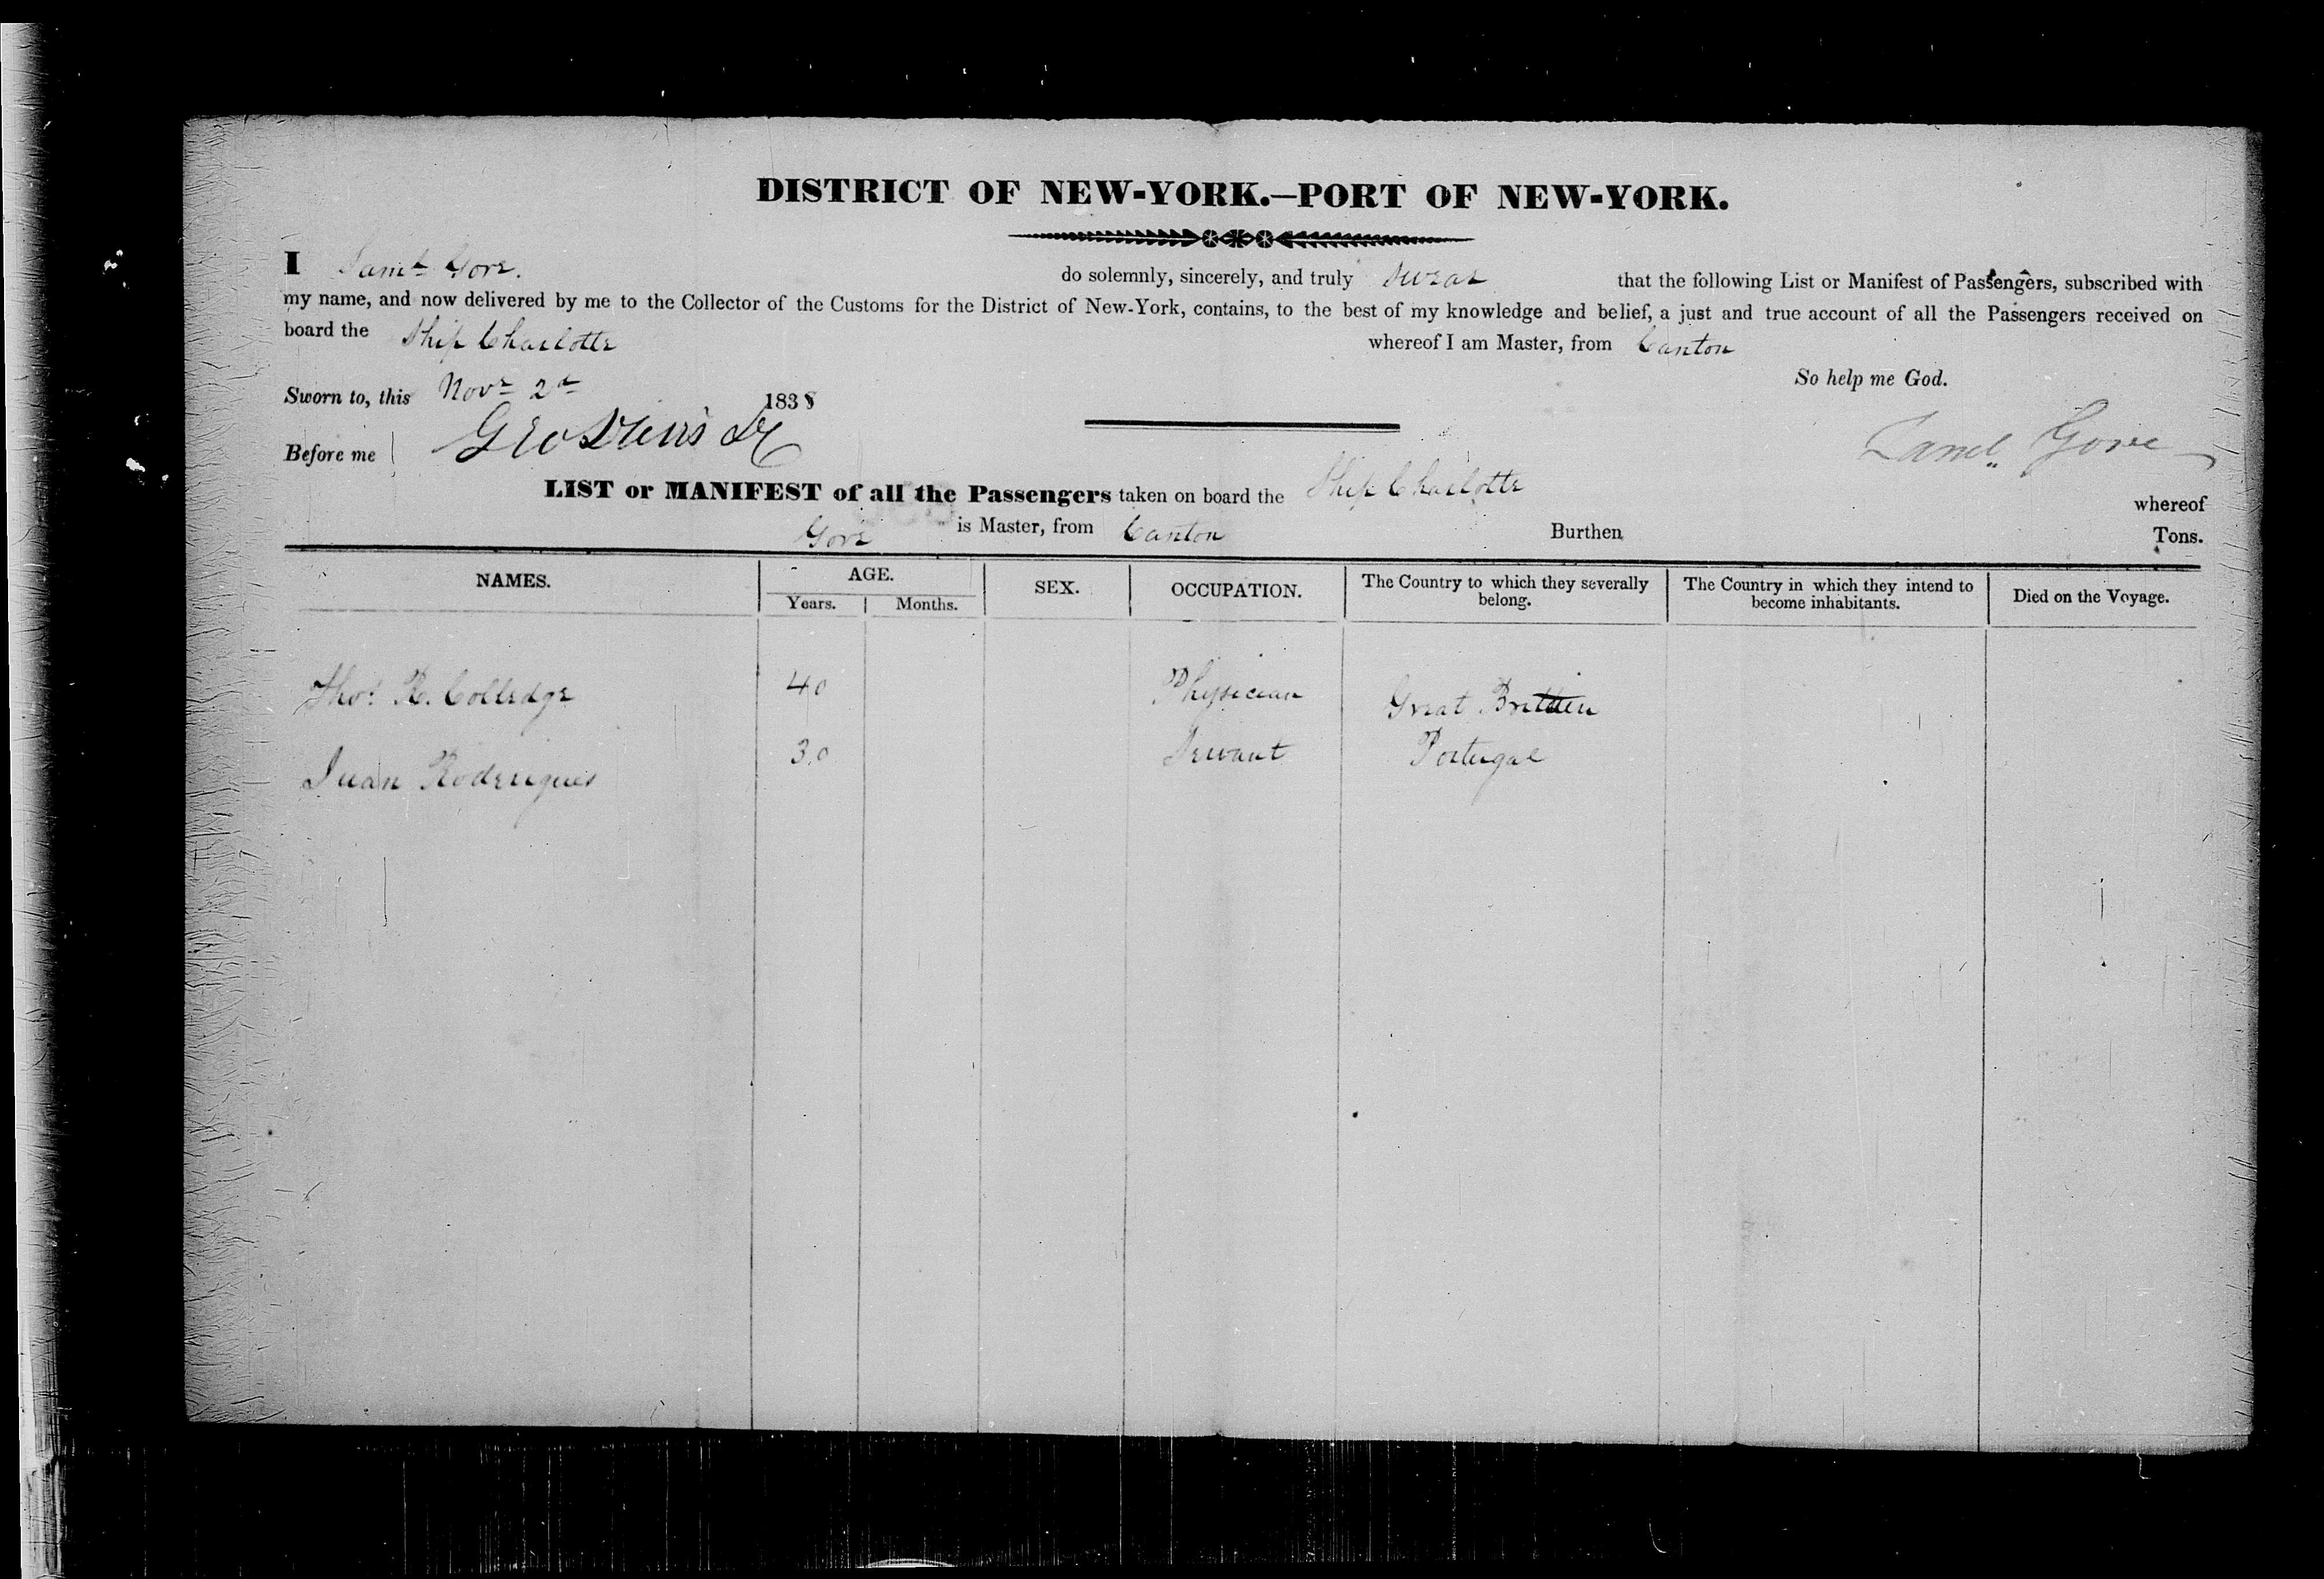 DISTRICT OF NEW-YORK.—PORT OF NEW-YORK.
I Saml Gore. do solemnly, sincerely, and truly swear that the following List or Manifest of Passengers, subscribed with
my name, and now delivered by me to the Collector of the Customs for the District of New-York, contains, to the best of my knowledge and belief, a just and true account of all the Passengers received on
board the Ship Charlotte whereof I am Master, from Canton
So help me God.
Sworn to, this Novr 2d 1838
Before me Geo
Saml Gore
LIST or MANIFEST of all the Passengers taken on board the Ship Charlotte whereof
Gore is Master, from Canton Burthen Tons.
NAMES. AGE. Years. Months. SEX. OCCUPATION. The Country to which they severally belong. The Country in which they intend to become inhabitants. Died on the Voyage.
Thos R. Colledge 40 Physician Great Brittien
Juan Roderigues 30 Servant Portugal